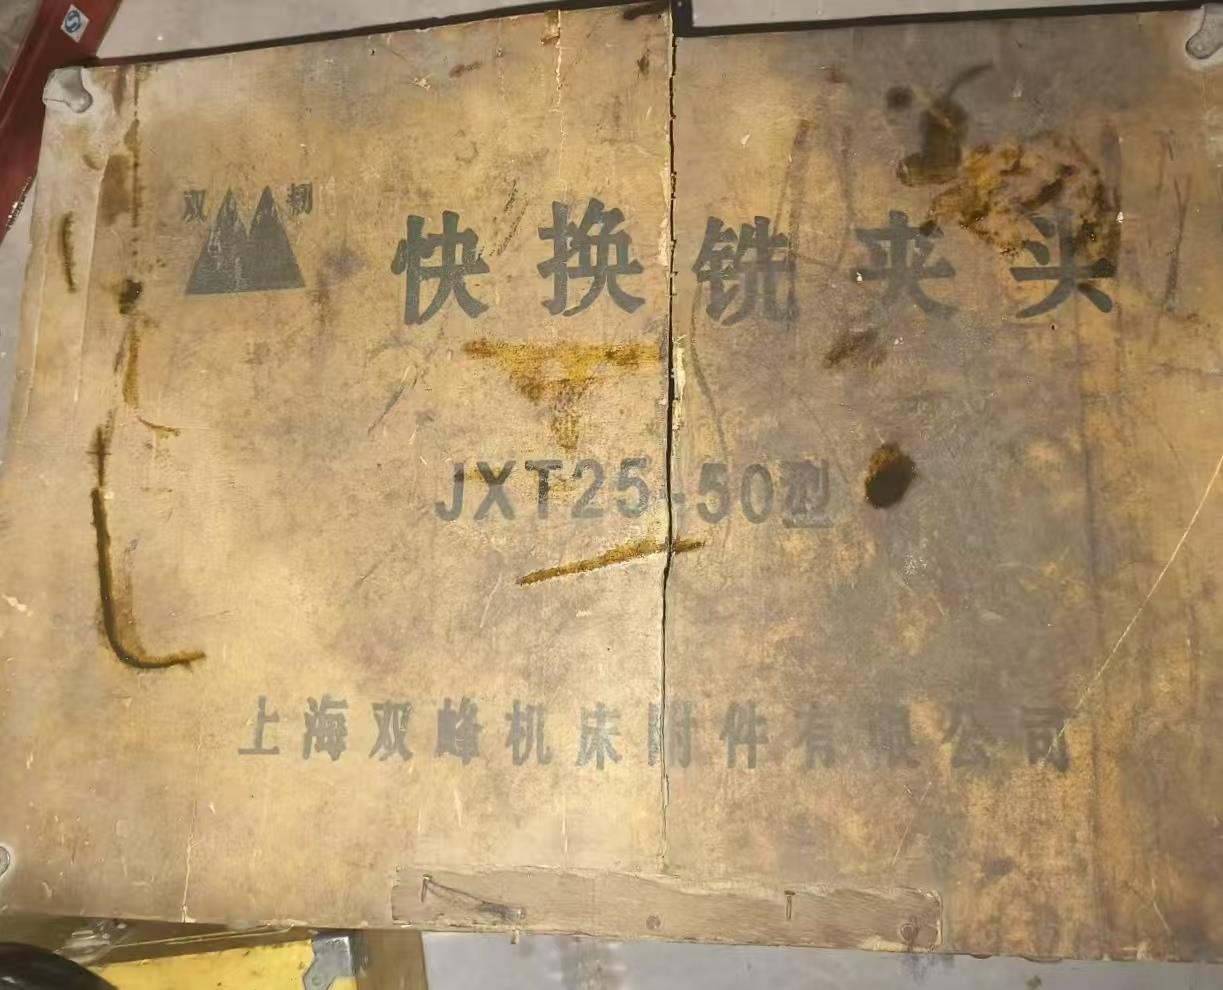 双
快换铣夹头
JXT25-50型
上海双峰机床附件有限公司